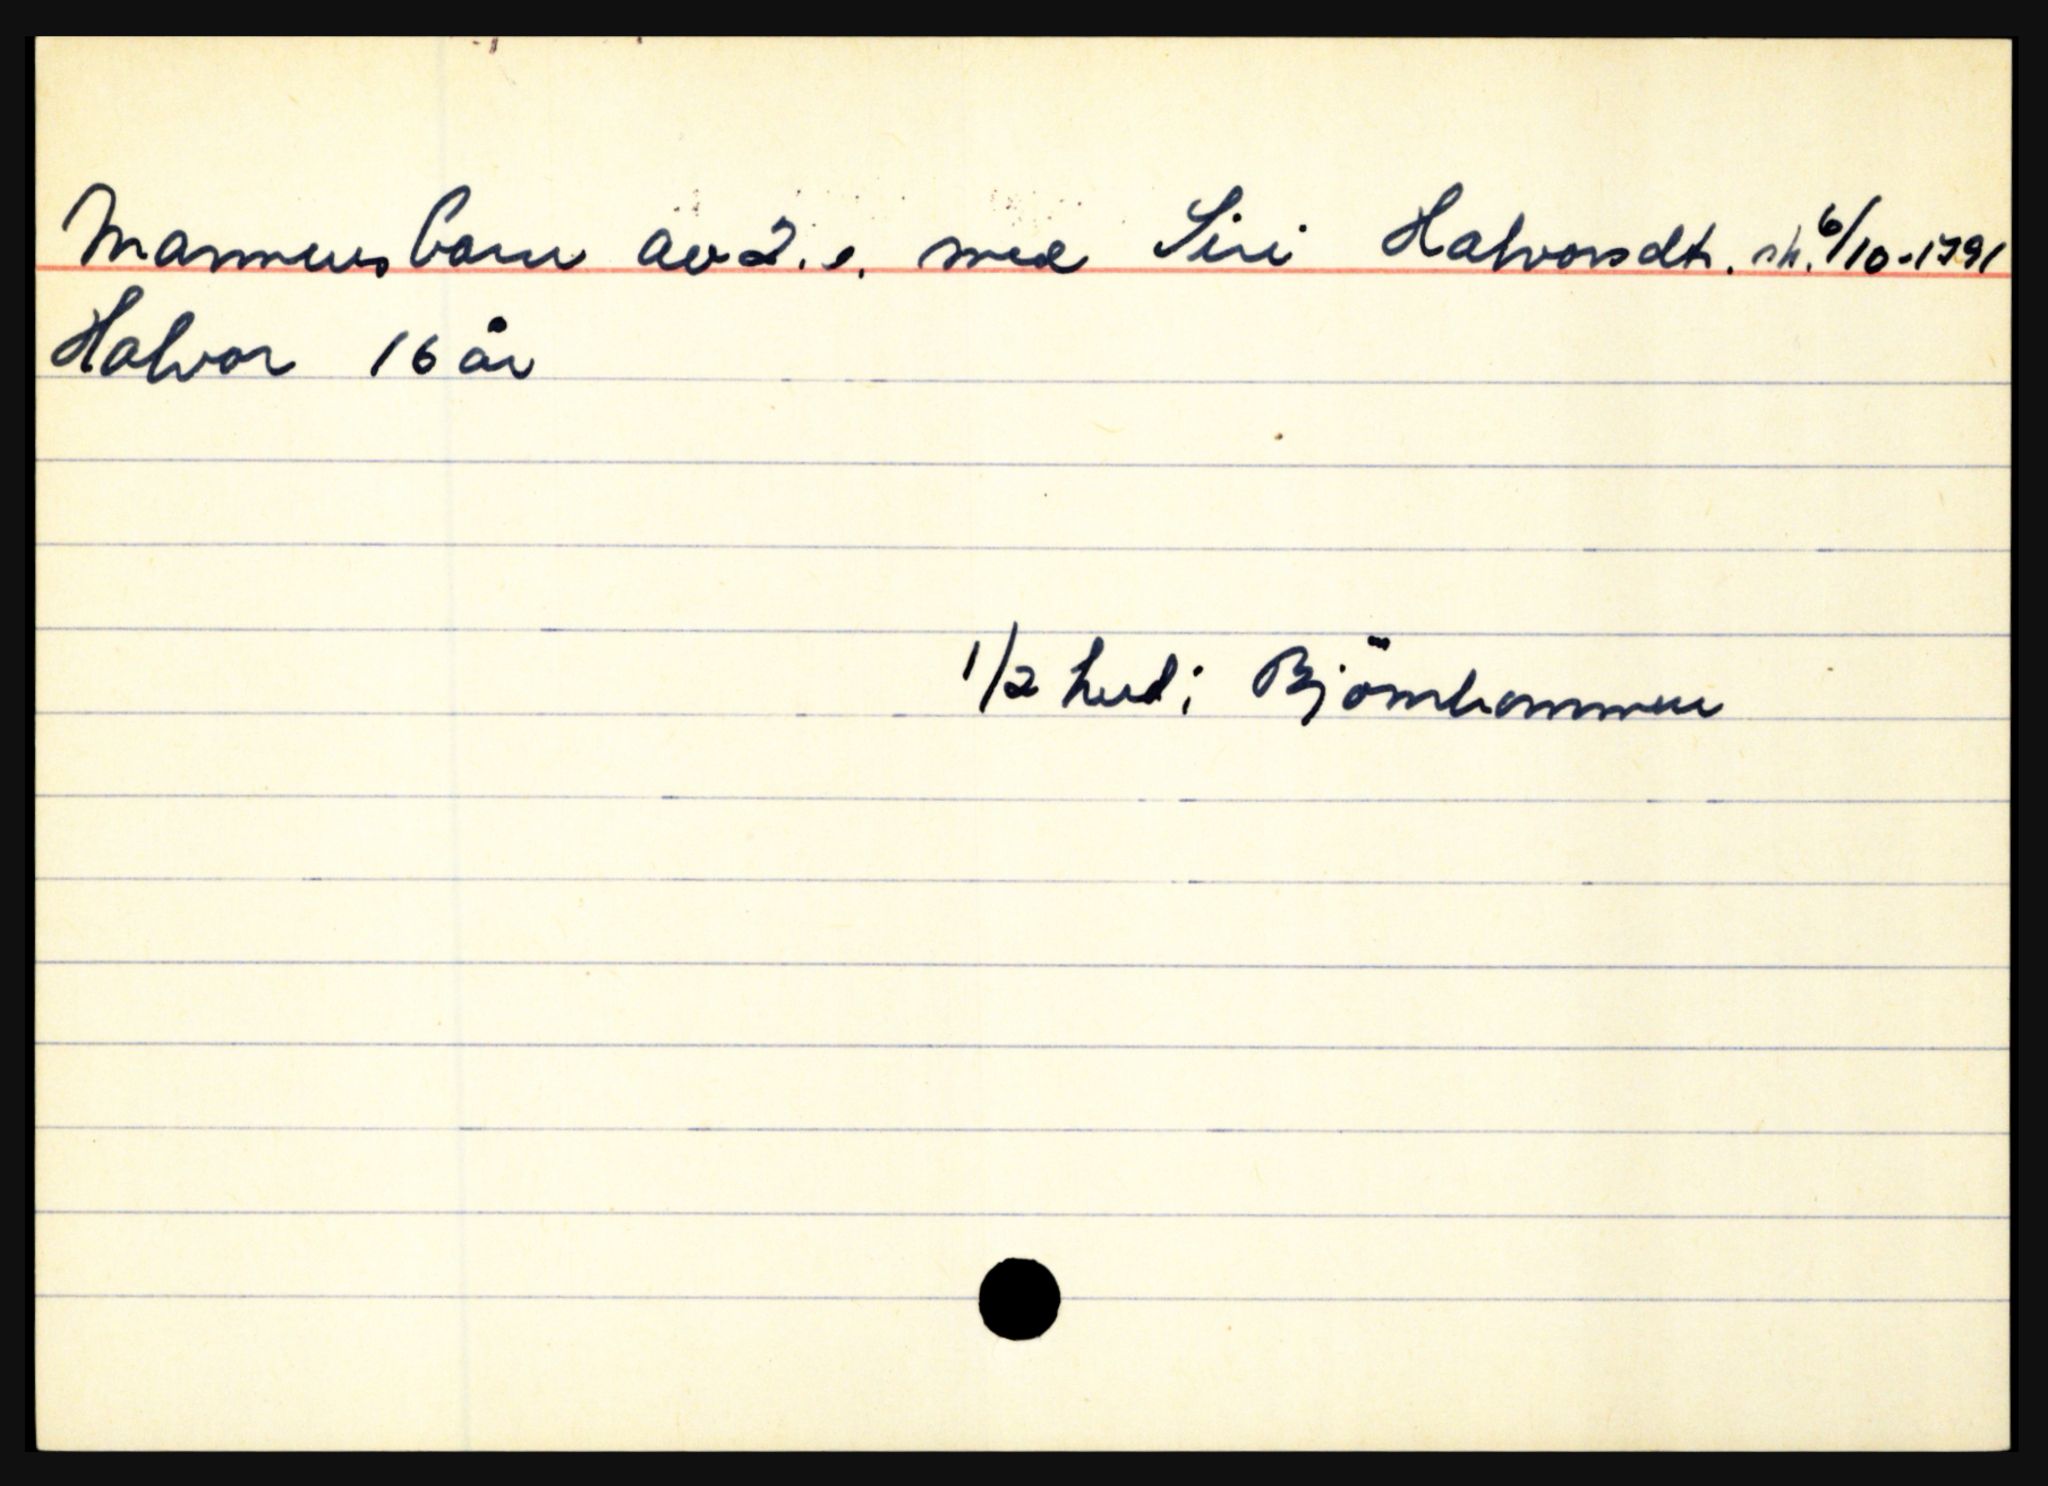 Mannens barn av 2. e. med Siri Halvorsdtr. sk. 6/10-1791
Halvor 16 år
1/2 hud i Björnhommen